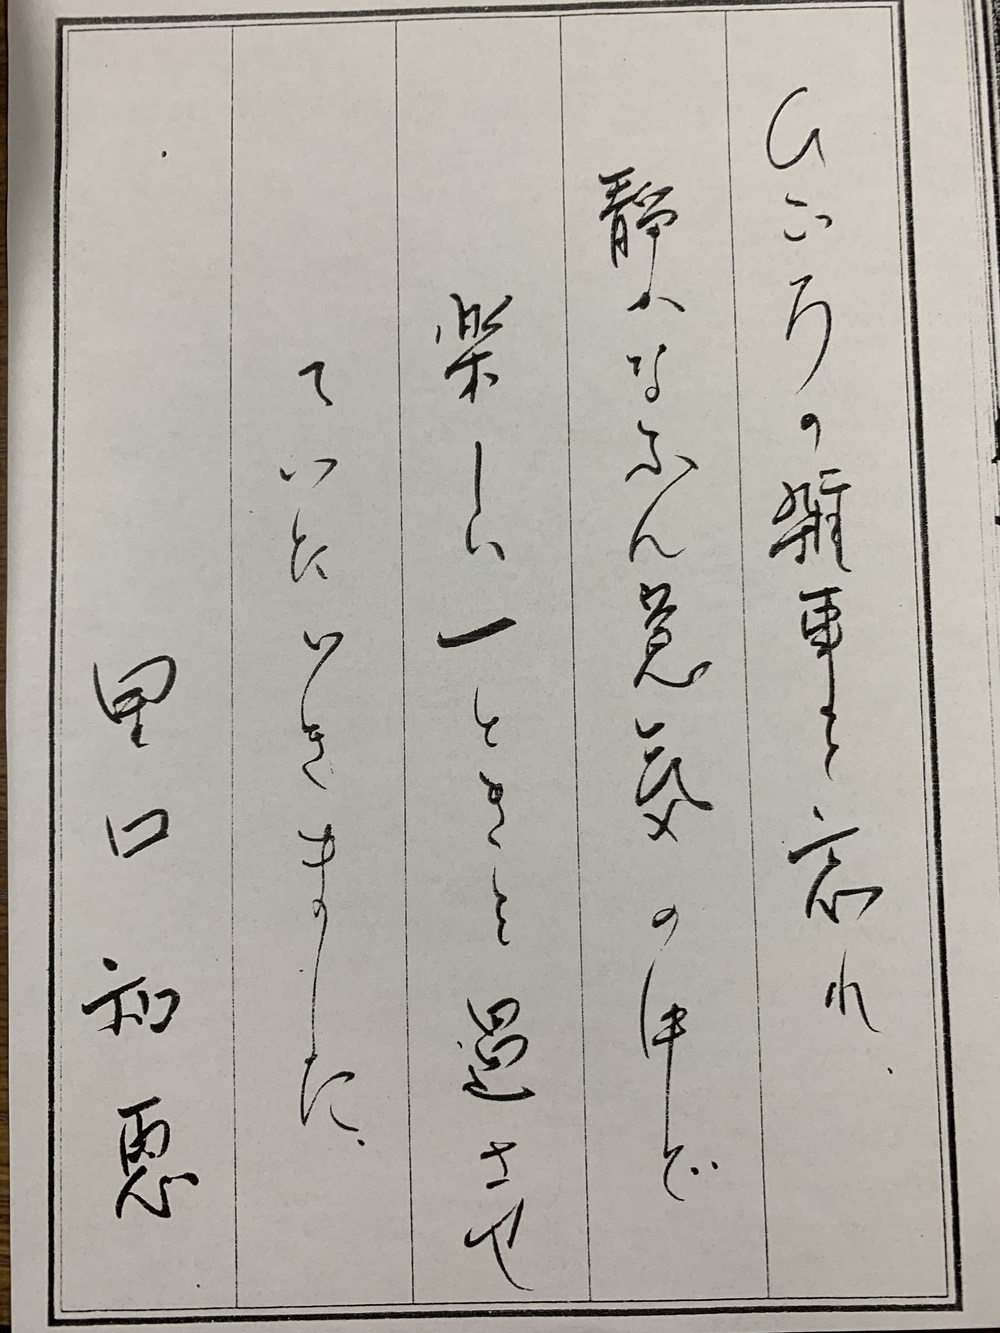 ひごろの雑事を忘れ、
静かなふん覚気の中で
楽しい一ときを過させ
ていたゞきました、
里口和恵